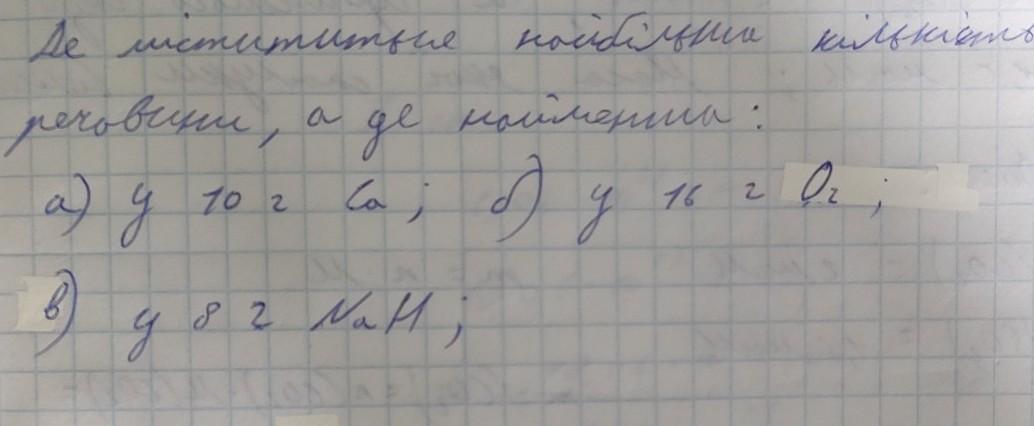 Де міститься найбільша кількість
речовини, а де найменша:
а) у 10 г Ca; б) у 16 г O₂;
в) у 8 г NaH;